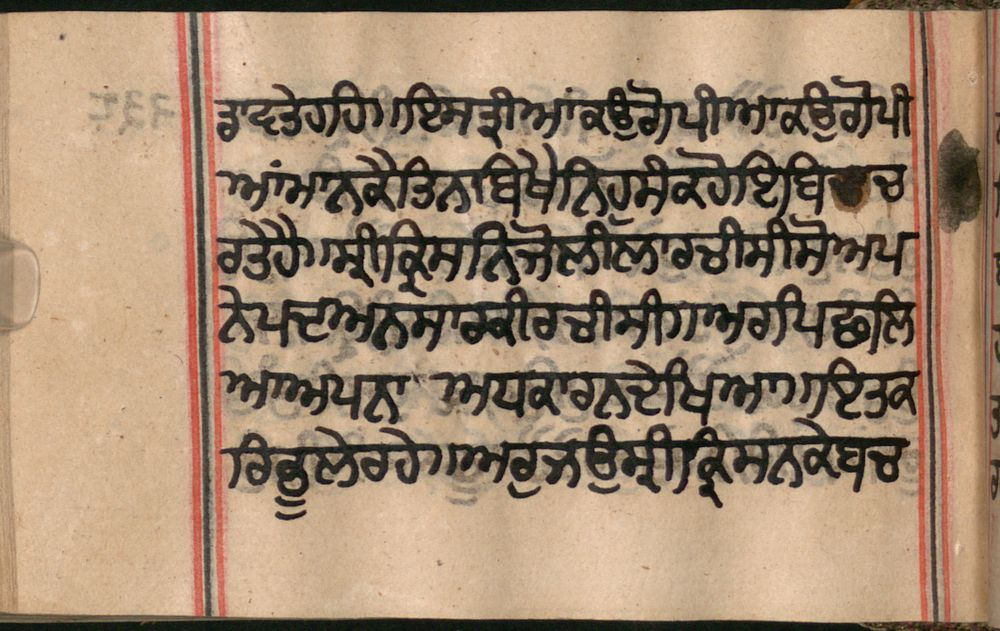 ਰਾਵਤੇਹਹਿ॥ਇਸਤ੍ਰੀਆਂਕਉਗੋਪੀਆਕਉਗੋਪੀ
ਆਂਮਾਨਕੈਤਿਨਾਬਿਖੈਨਿਹਸੰਕਹੋਇਬਿ ਚ
ਰਤੇਹੈ॥ਸ੍ਰੀਕ੍ਰਿਸਨਿਜੋਲੀਲਾਰਚੀਸੀਸੋਅਪ
ਨੇਪਦਾਅਨਸਾਰਕੀਰਚੀਸੀ॥ਅਗੀਪਛਲਿ
ਆਅਪਨਾ ਅਧਕਾਰਨਦੇਖਿਆ॥ਇਤਕ
ਰਿਭੂਲੇਰਹੇ॥ਅਰੁਜਉਸ੍ਰੀਕ੍ਰਿਸਨਕੇਬਚ